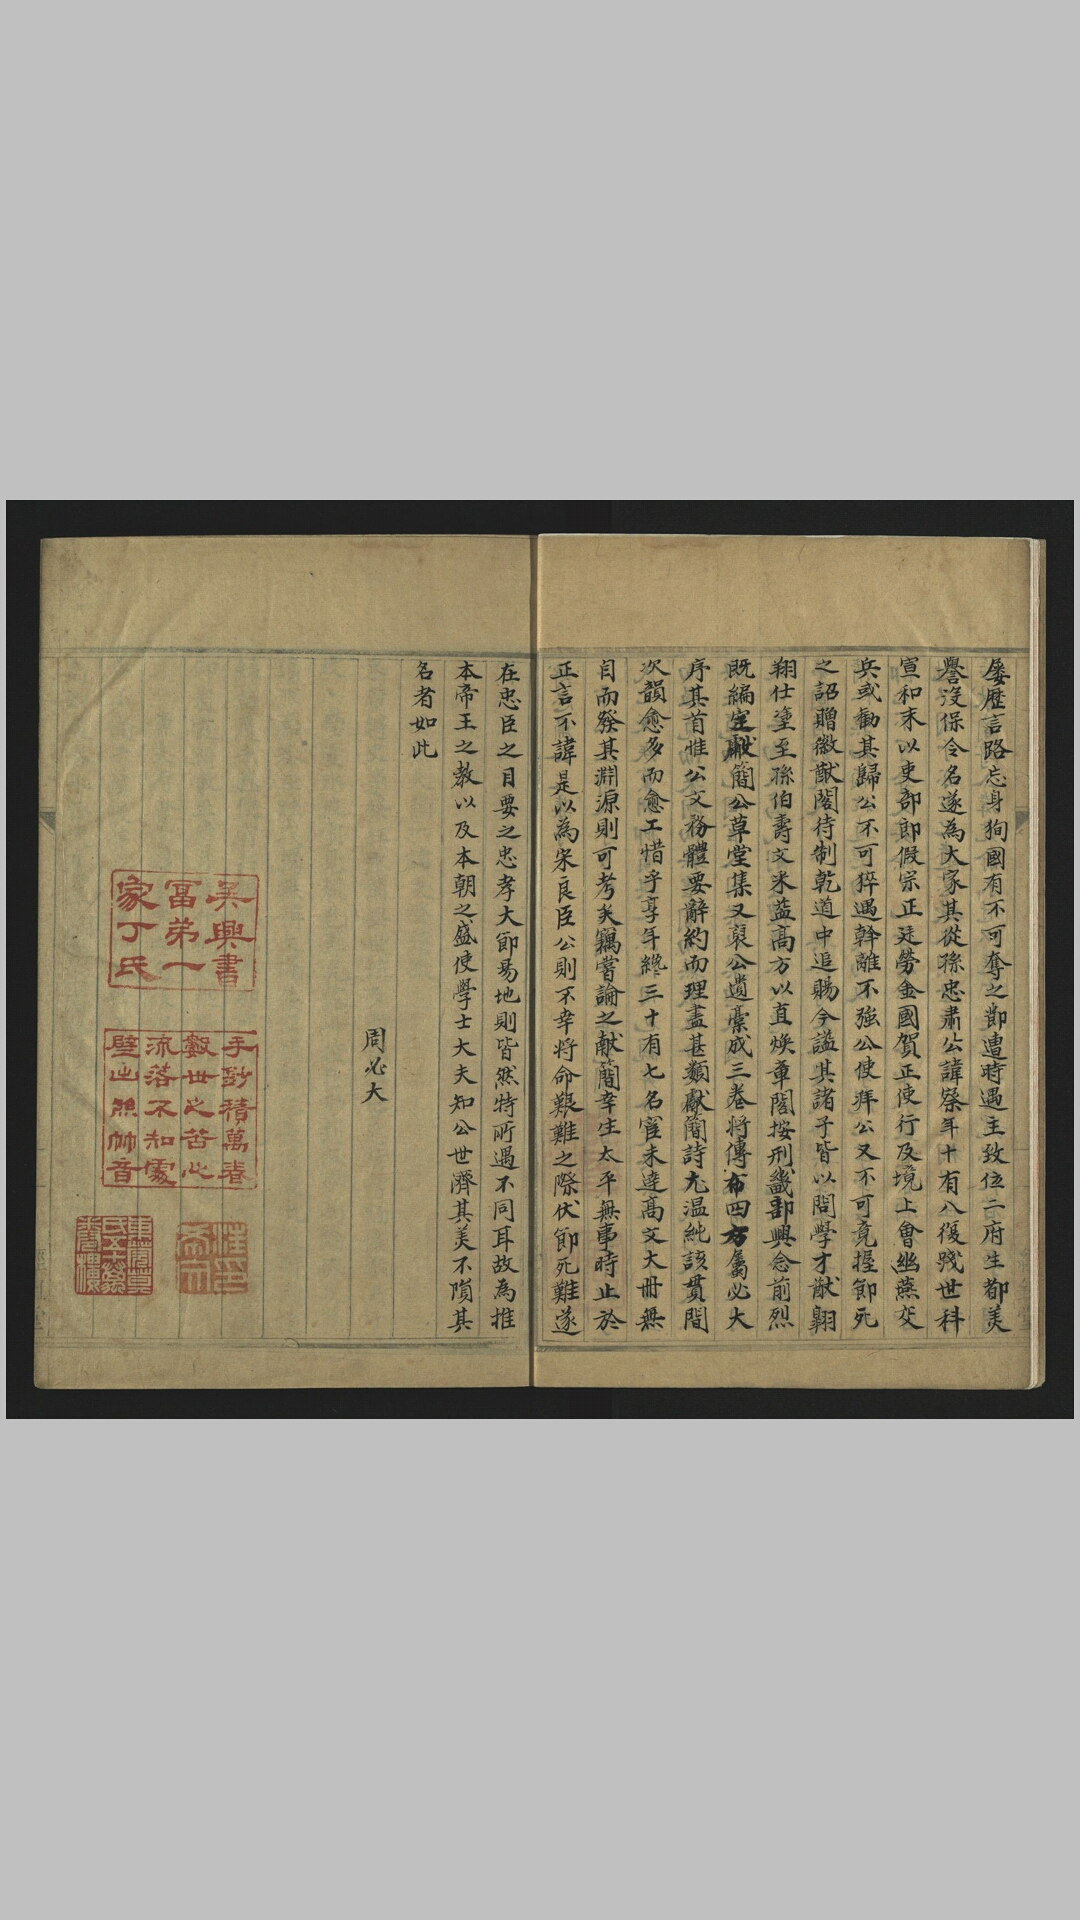 屢歷言路忘身狥國有不可奪之節遭時遇主致位二府生都美
譽沒保令名遂為大家其從孫忠肅公諱察年十有八復踐世科
宣和末以吏部郎假宗正廷勞金國賀正使行及境上會幽燕交
兵或勸其歸公不可猝遇斡離不強公使拜公又不可竟握節死
之詔贈徽猷閣待制乾道中追賜今謚其諸子皆以問學才猷翺
翔仕塗至孫伯壽文米益高方以直煥章閣按刑畿部興念前烈
既編定獻簡公草堂集又裒公遺稾成三卷將傳布四方屬必大
序其首惟公文務體要辭約而理盡甚類獻簡詩尤温純該貫間
次韻愈多而愈工惜乎享年纔三十有七名宦未達高文大冊無
自而發其淵源則可考矣竊嘗論之獻簡幸生太平無事時止於
正言不諱是以為宋良臣公則不幸將命艱難之際伏節死難遂
在忠臣之目要之忠孝大節易地則皆然特所遇不同耳故為推
本帝王之教以及本朝之盛使學士大夫知公世濟其美不隕其
名者如此
周必大
吳興書
冨弟一
家丁氏
手鈔積萬卷
數世之苦心
流落不知處
壁出絲竹音